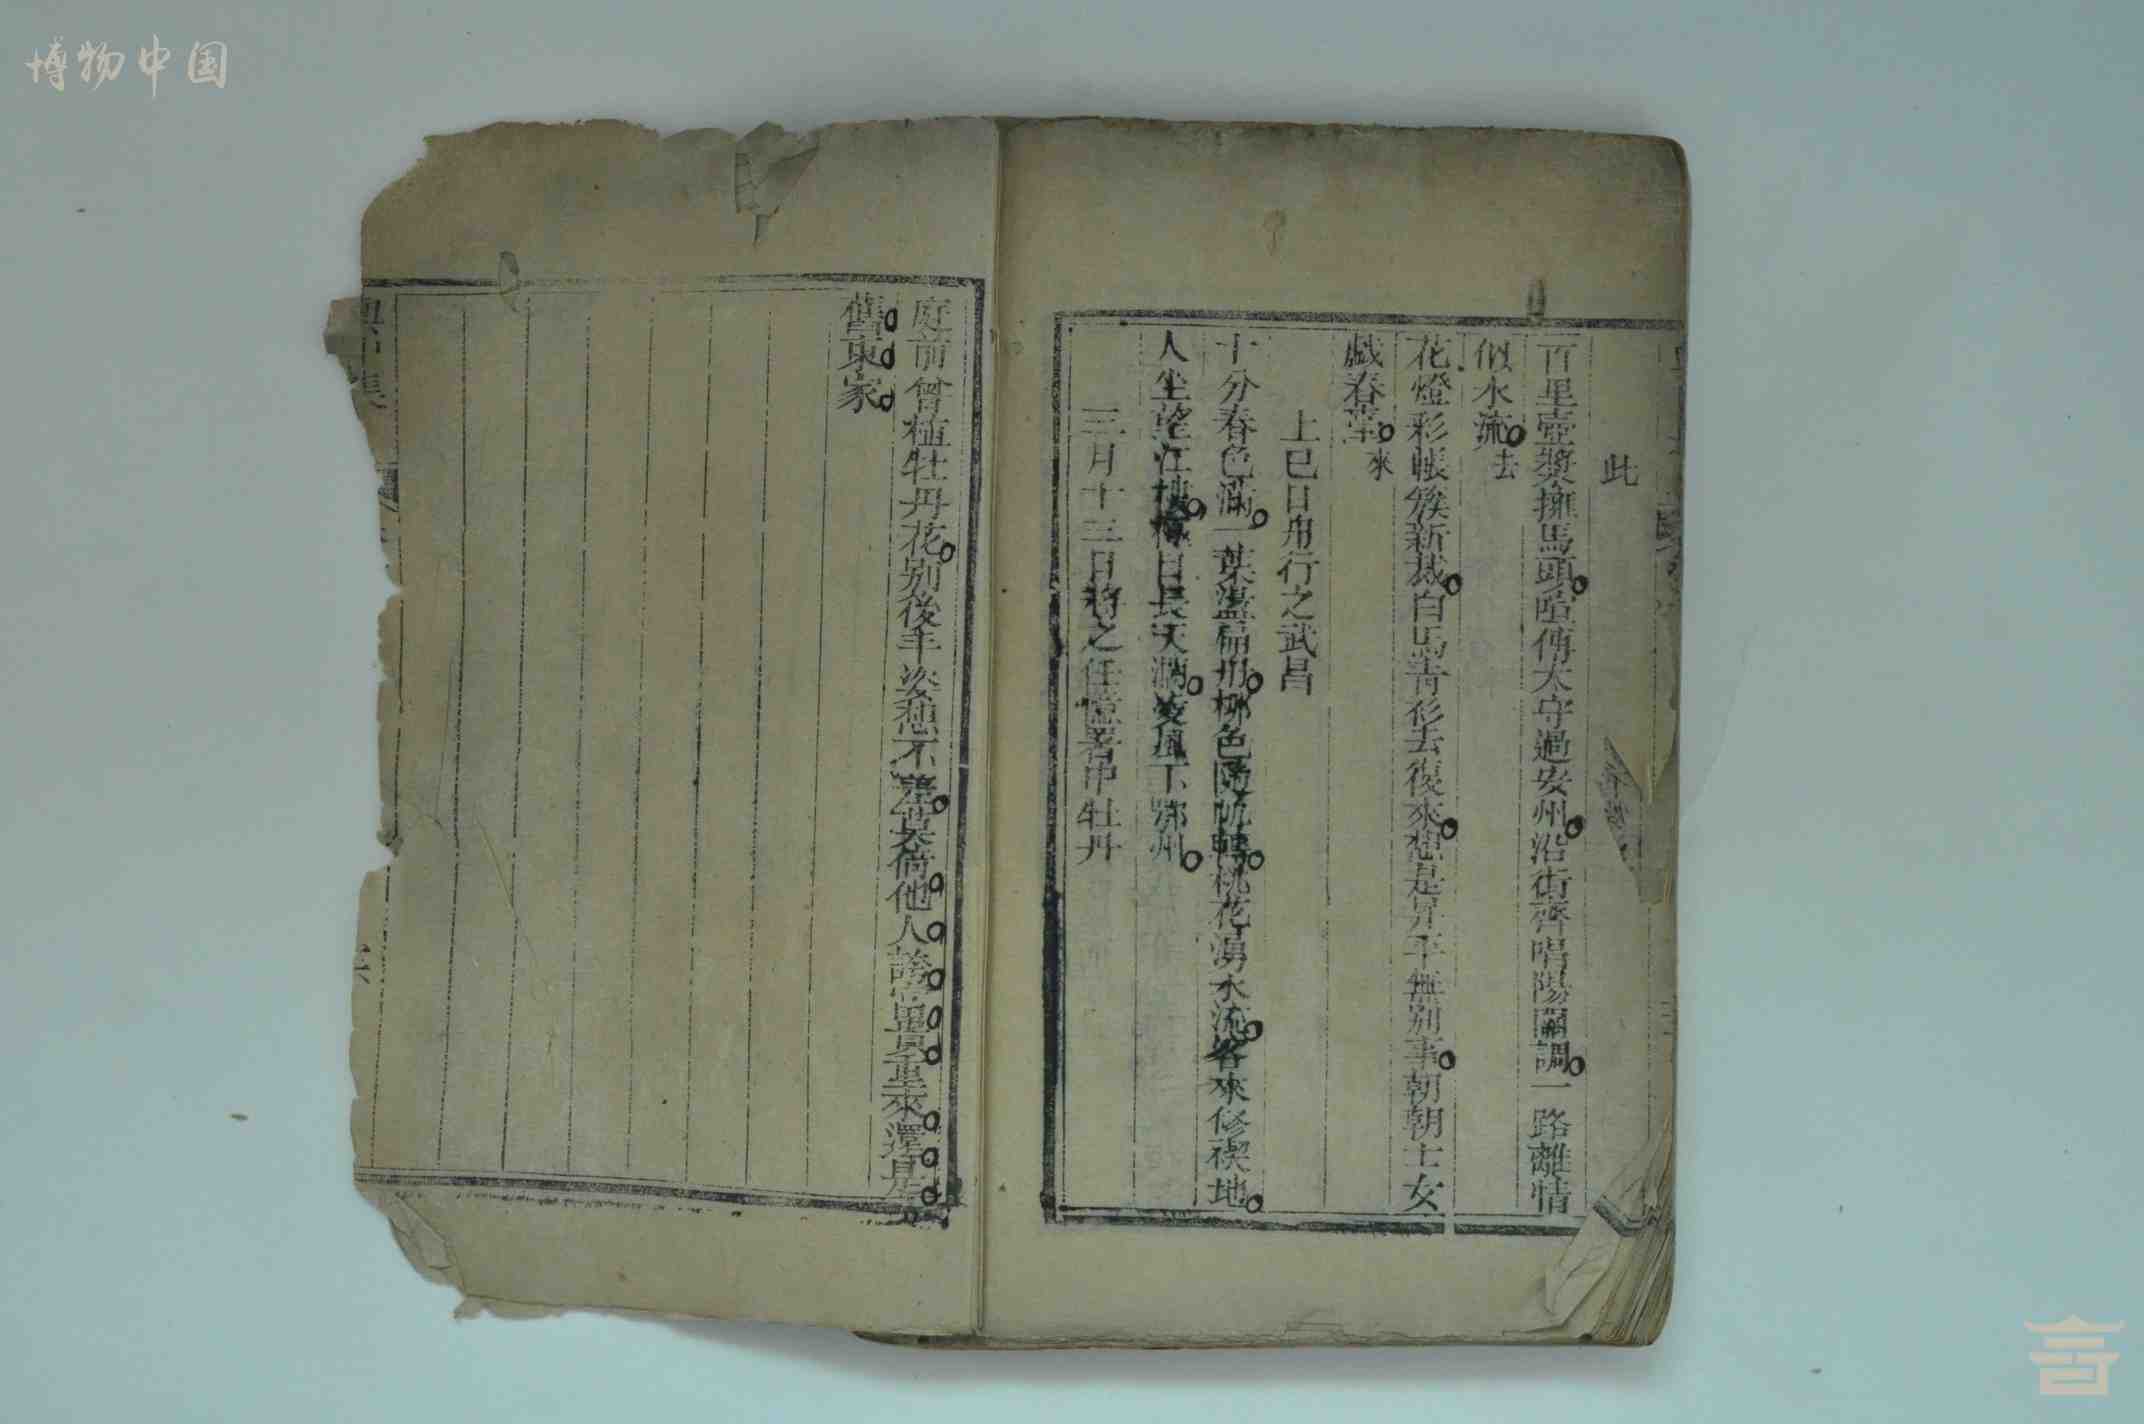 博物中国
此
百里壺漿擁馬頭喧傳太守過安州沿街齊唱陽關調一路離情
似水流去
花燈彩帳簇新裁白馬靑衫去復來想是昇平無別事朝朝士女
戯春臺來
上巳日舟行之武昌
十分春色滿一葉漾扁舟柳色隨帆轉桃花湧水流客來修禊地
人坐望江樓極日長天濶凌風下鄂州
三月十三日將之任憶署中牡丹
庭前曾植牡丹花別後丰姿想不差莫倚他人誇富貴重來還是
舊東家